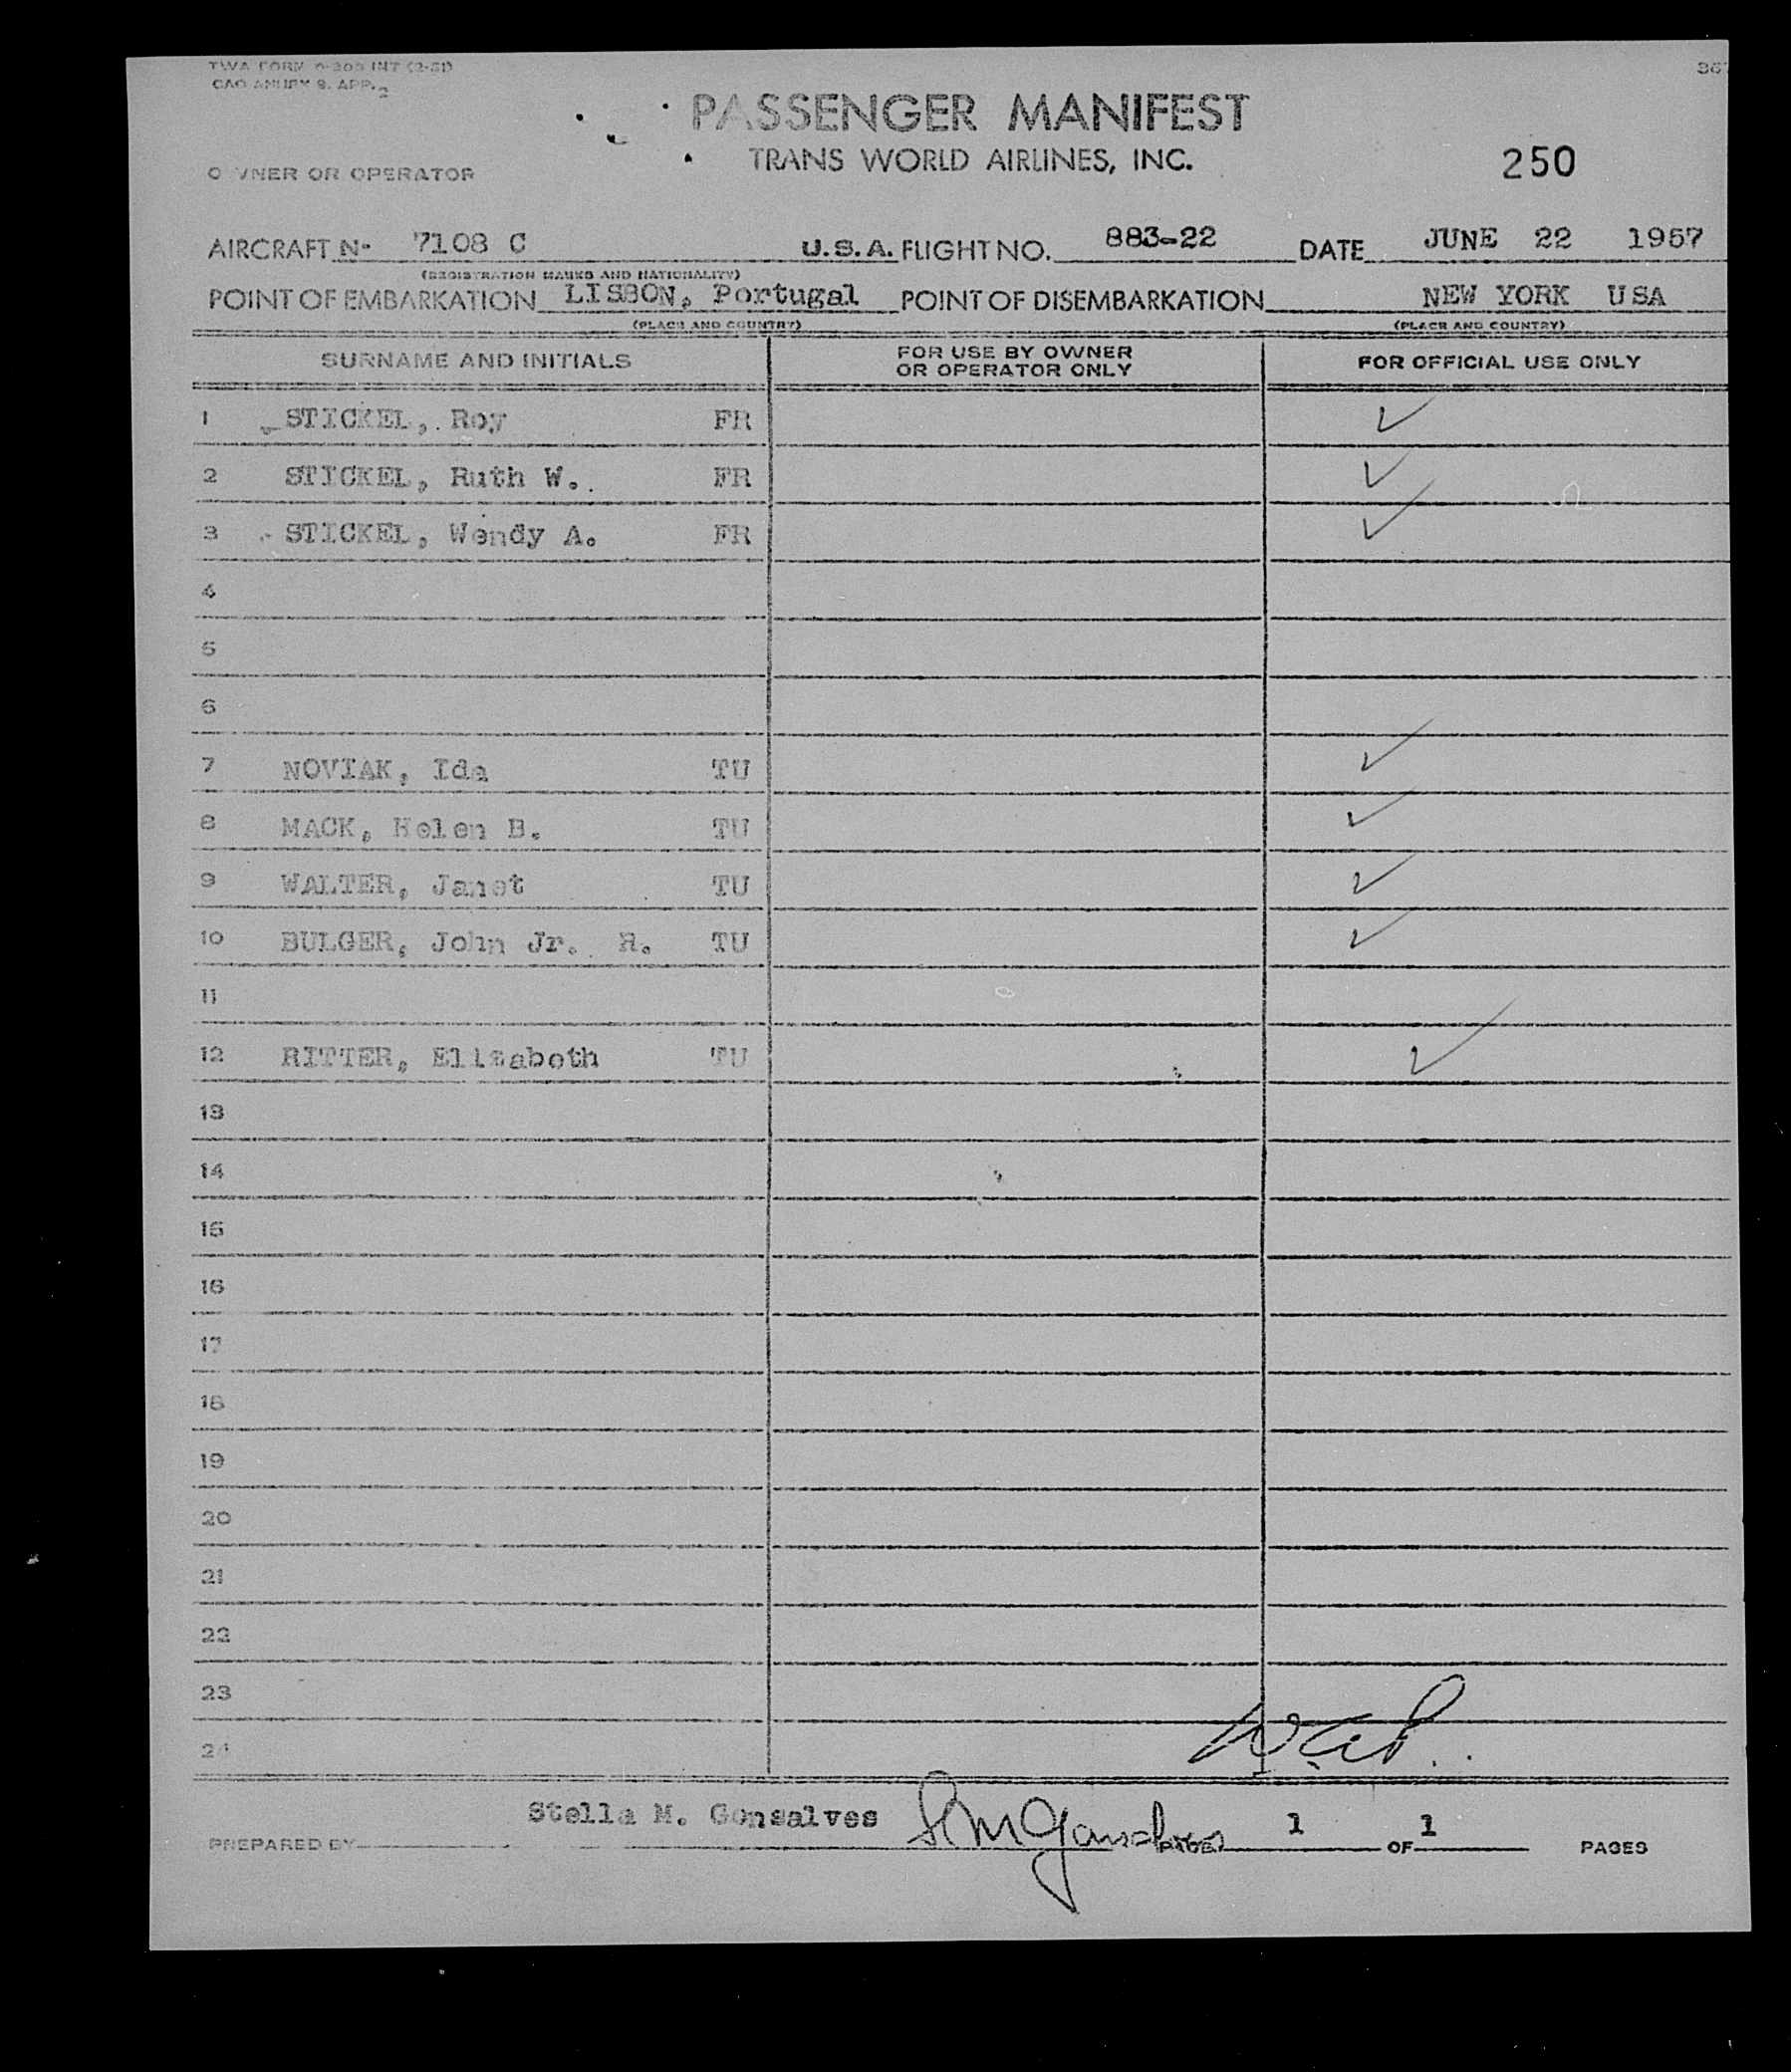 TWA FORM 0-300 INT (2-51)
CAO ANNEX 9. APP. 2
PASSENGER MANIFEST
TRANS WORLD AIRLINES, INC.
250
OWNER OR OPERATOR
AIRCRAFT Nº 7108 C U.S.A. FLIGHT NO. 883-22 DATE JUNE 22 1957
(REGISTRATION MARKS AND NATIONALITY)
POINT OF EMBARKATION LISBON, Portugal POINT OF DISEMBARKATION NEW YORK USA
(PLACE AND COUNTRY) (PLACE AND COUNTRY)
SURNAME AND INITIALS FOR USE BY OWNER OR OPERATOR ONLY FOR OFFICIAL USE ONLY
1 STICKEL, Roy FR ✓
2 STICKEL, Ruth W. FR ✓
3 STICKEL, Wendy A. FR ✓
4
5
6
7 NOVIAK, Ida TU ✓
8 MACK, Helen B. TU ✓
9 WALTER, Janet TU ✓
10 BULGER, John Jr. R. TU ✓
11
12 RITTER, Elisabeth TU ✓
13
14
15
16
17
18
19
20
21
22
23
24
PREPARED BY Stella M. Gonsalves SMGonsalves PAGE 1 OF 1 PAGES